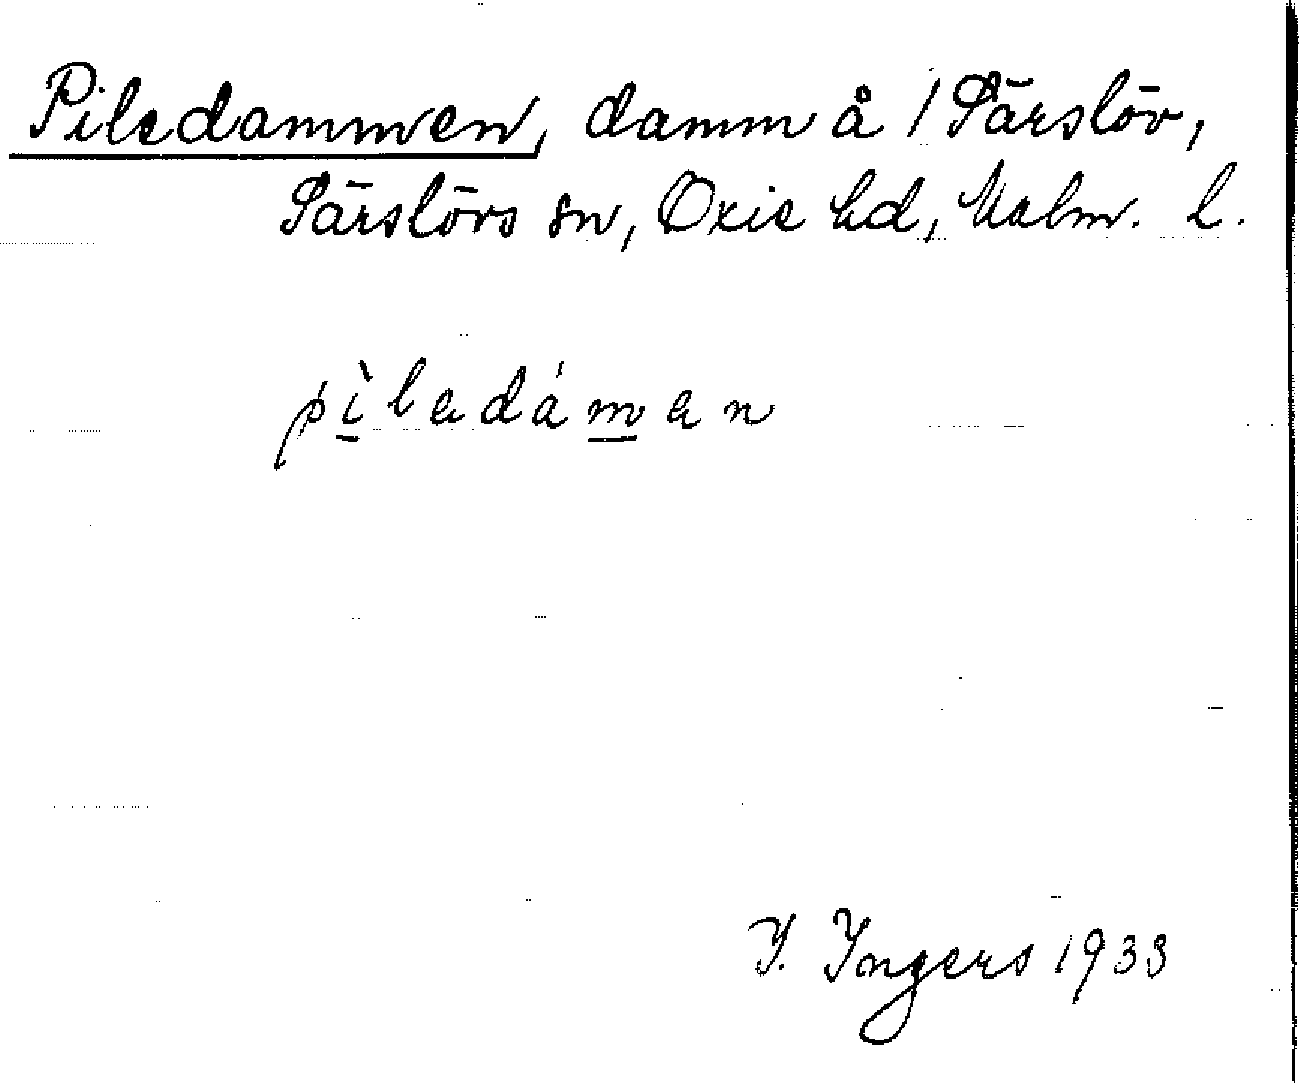 Piledammen, damm å 1 Särslöv,
Särslövs sn, Oxie hd, Malm. l.
pìladáman
I. Ingers 1933